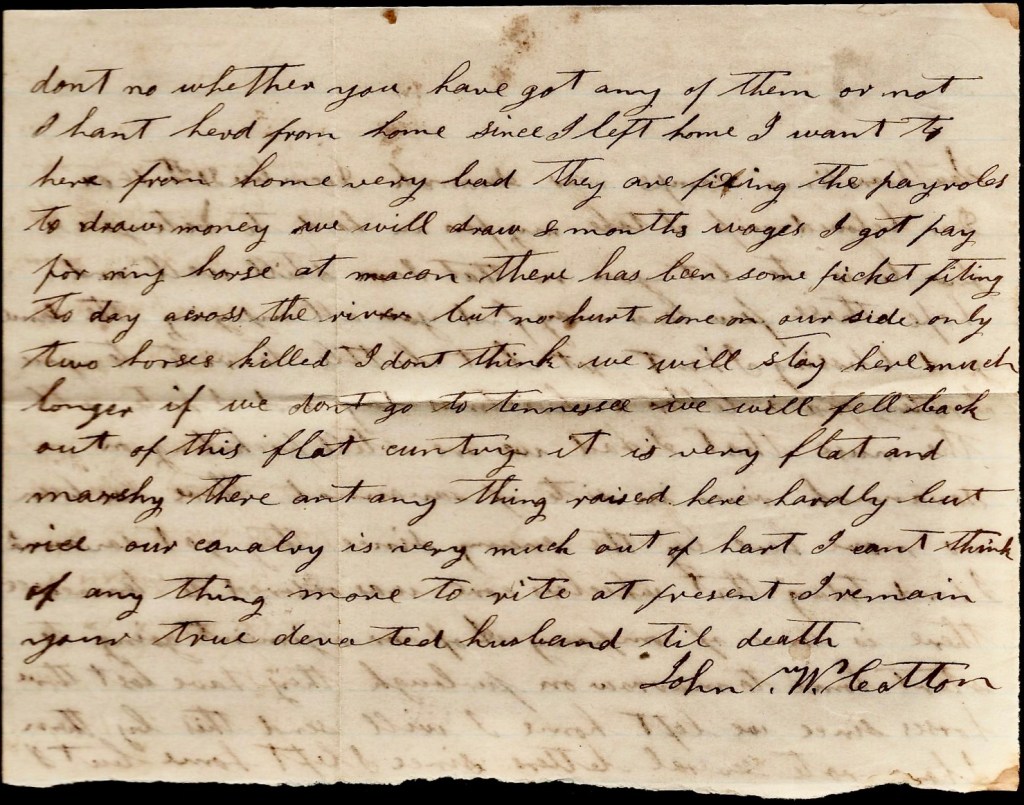 dont no whether you have got any of them or not
I hant herd from home since I left home I want to
here from home very bad they are fixing the payroles
to draw money we will draw 8 months wages I got pay
for my horse at macon there has been some picket fiting
to day across the river but no hurt done on our side only
two horses killed I dont think we will stay here much
longer if we dont go to tennessee we will fell back
out of this flat cuntry it is very flat and
marshy there ant any thing raised here hardly but
rice our cavalry is very much out of hart I cant think
of any thing more to rite at present I remain
your true devoted husband til death
John W Cotton